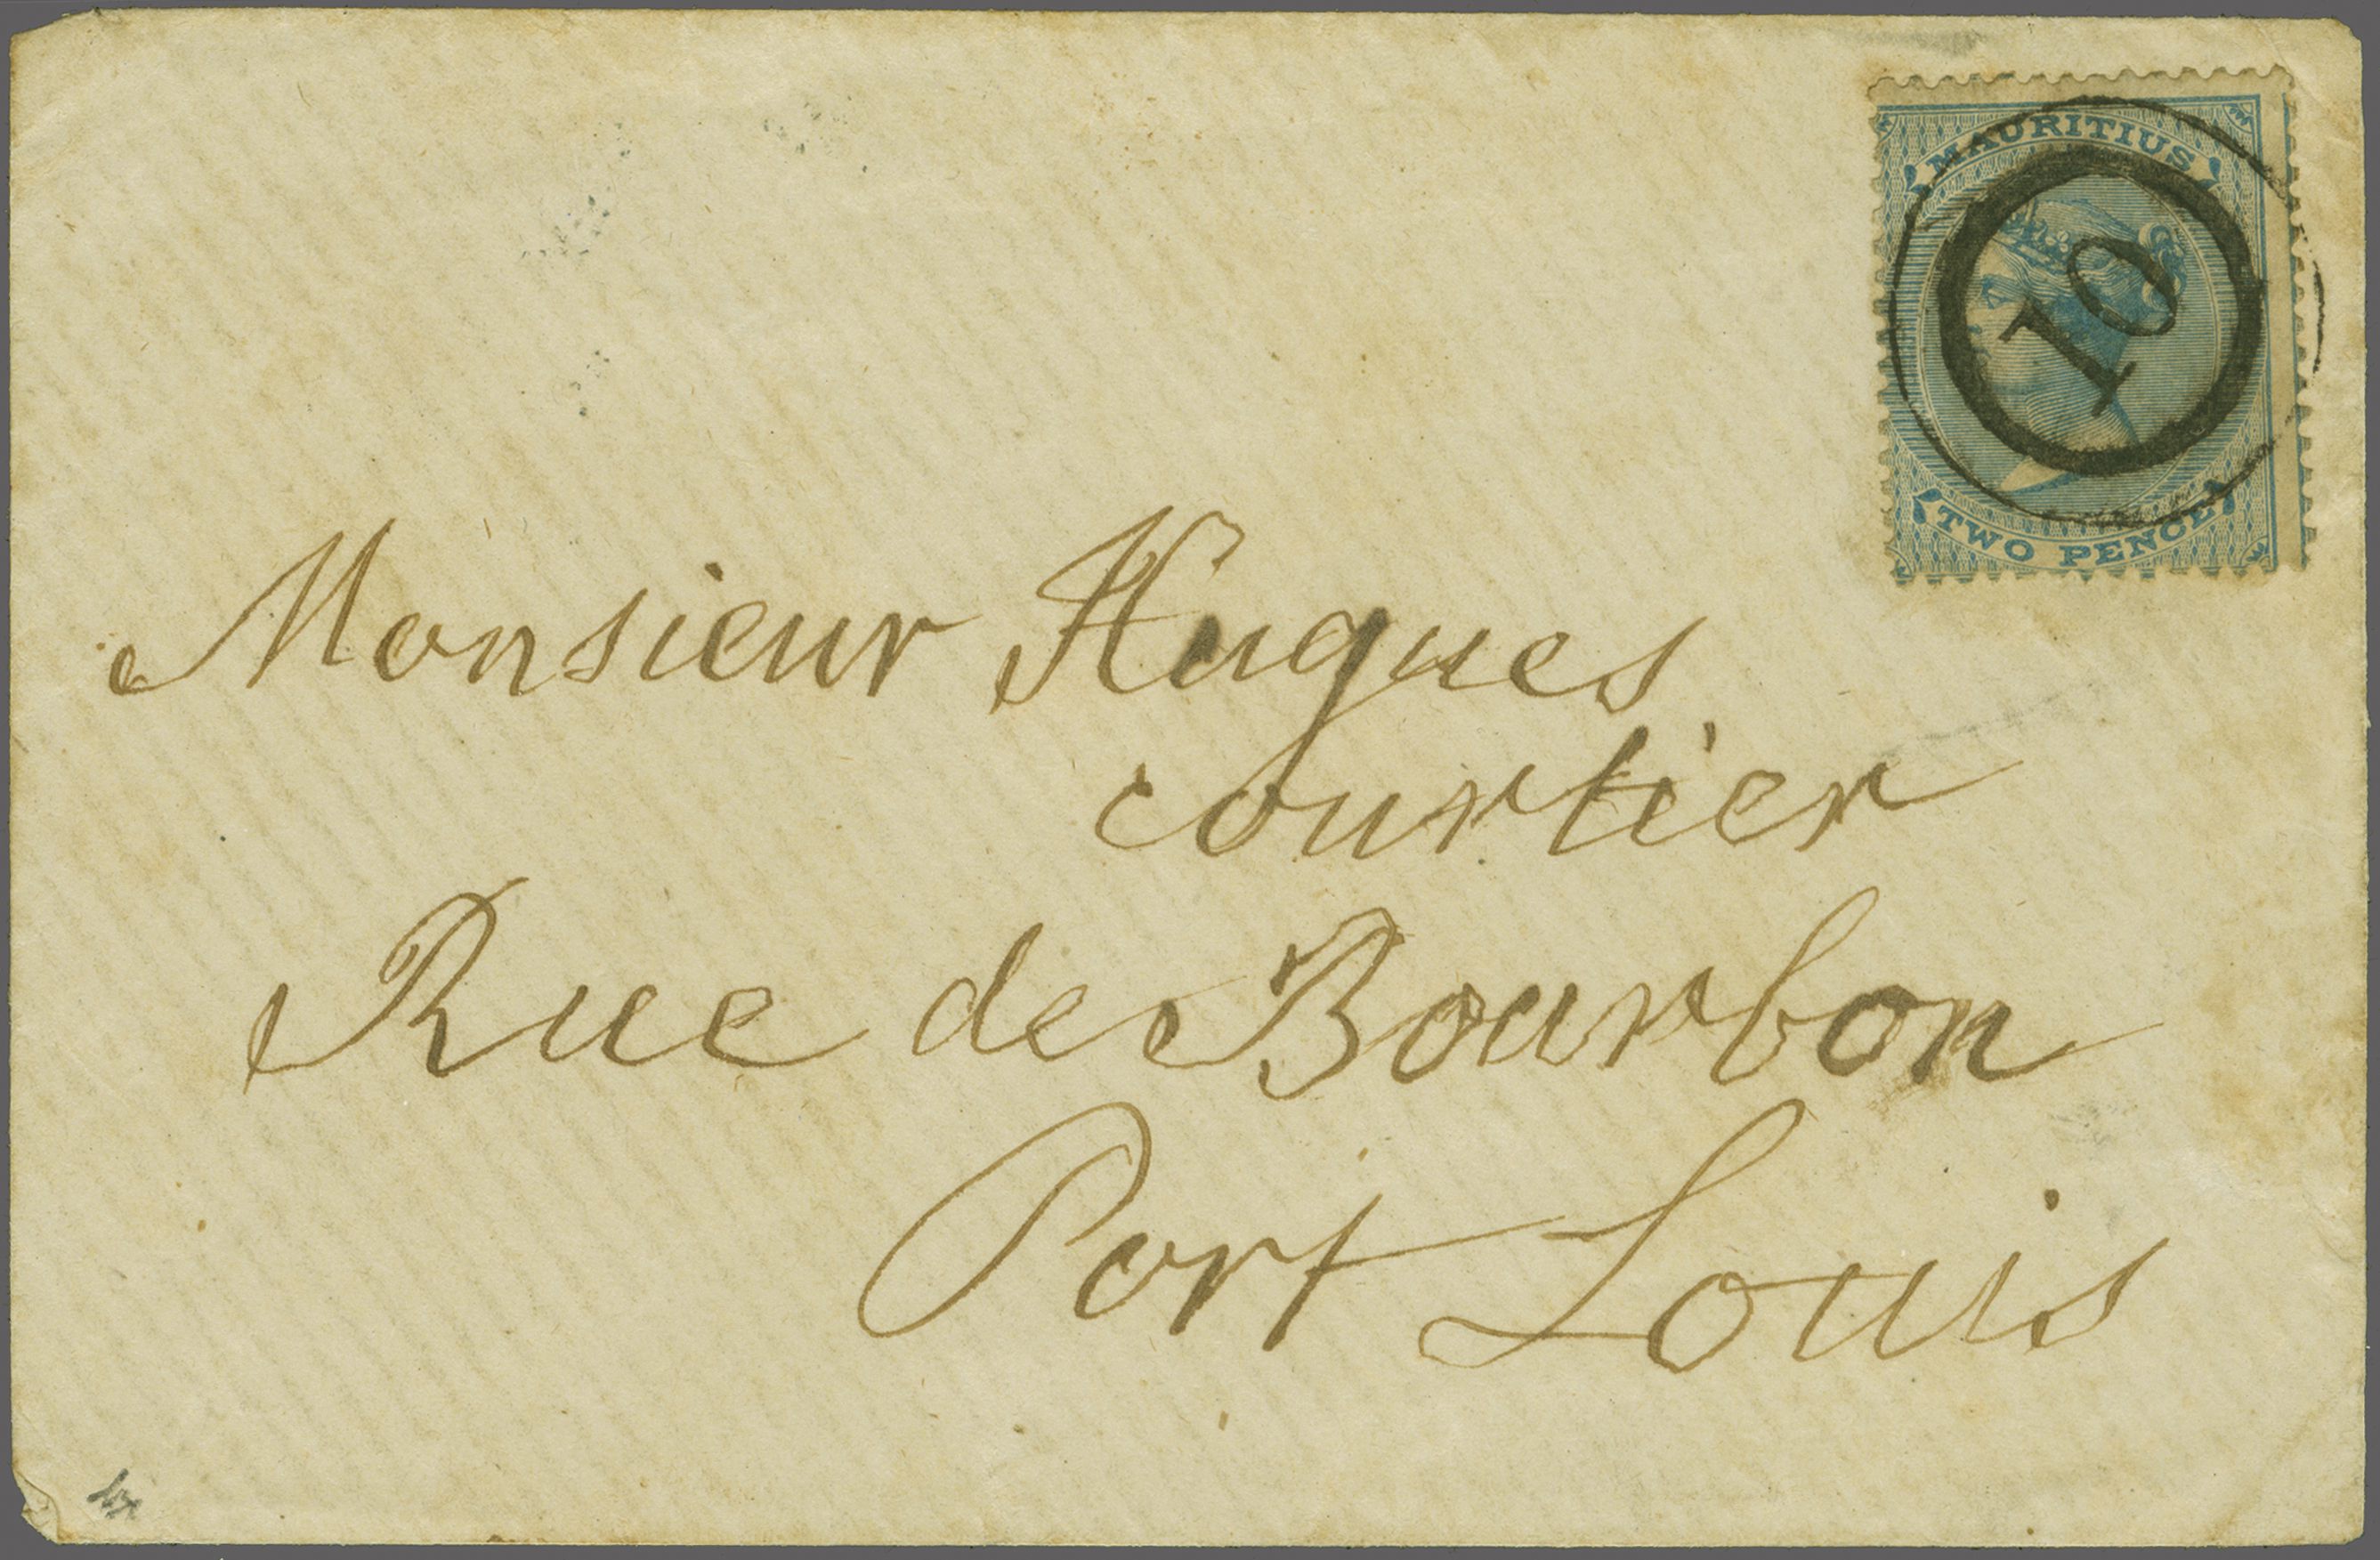 MAURITIUS
10
TWO PENCE
Monsieur Hugues
courtier
Rue de Bourbon
Port Louis